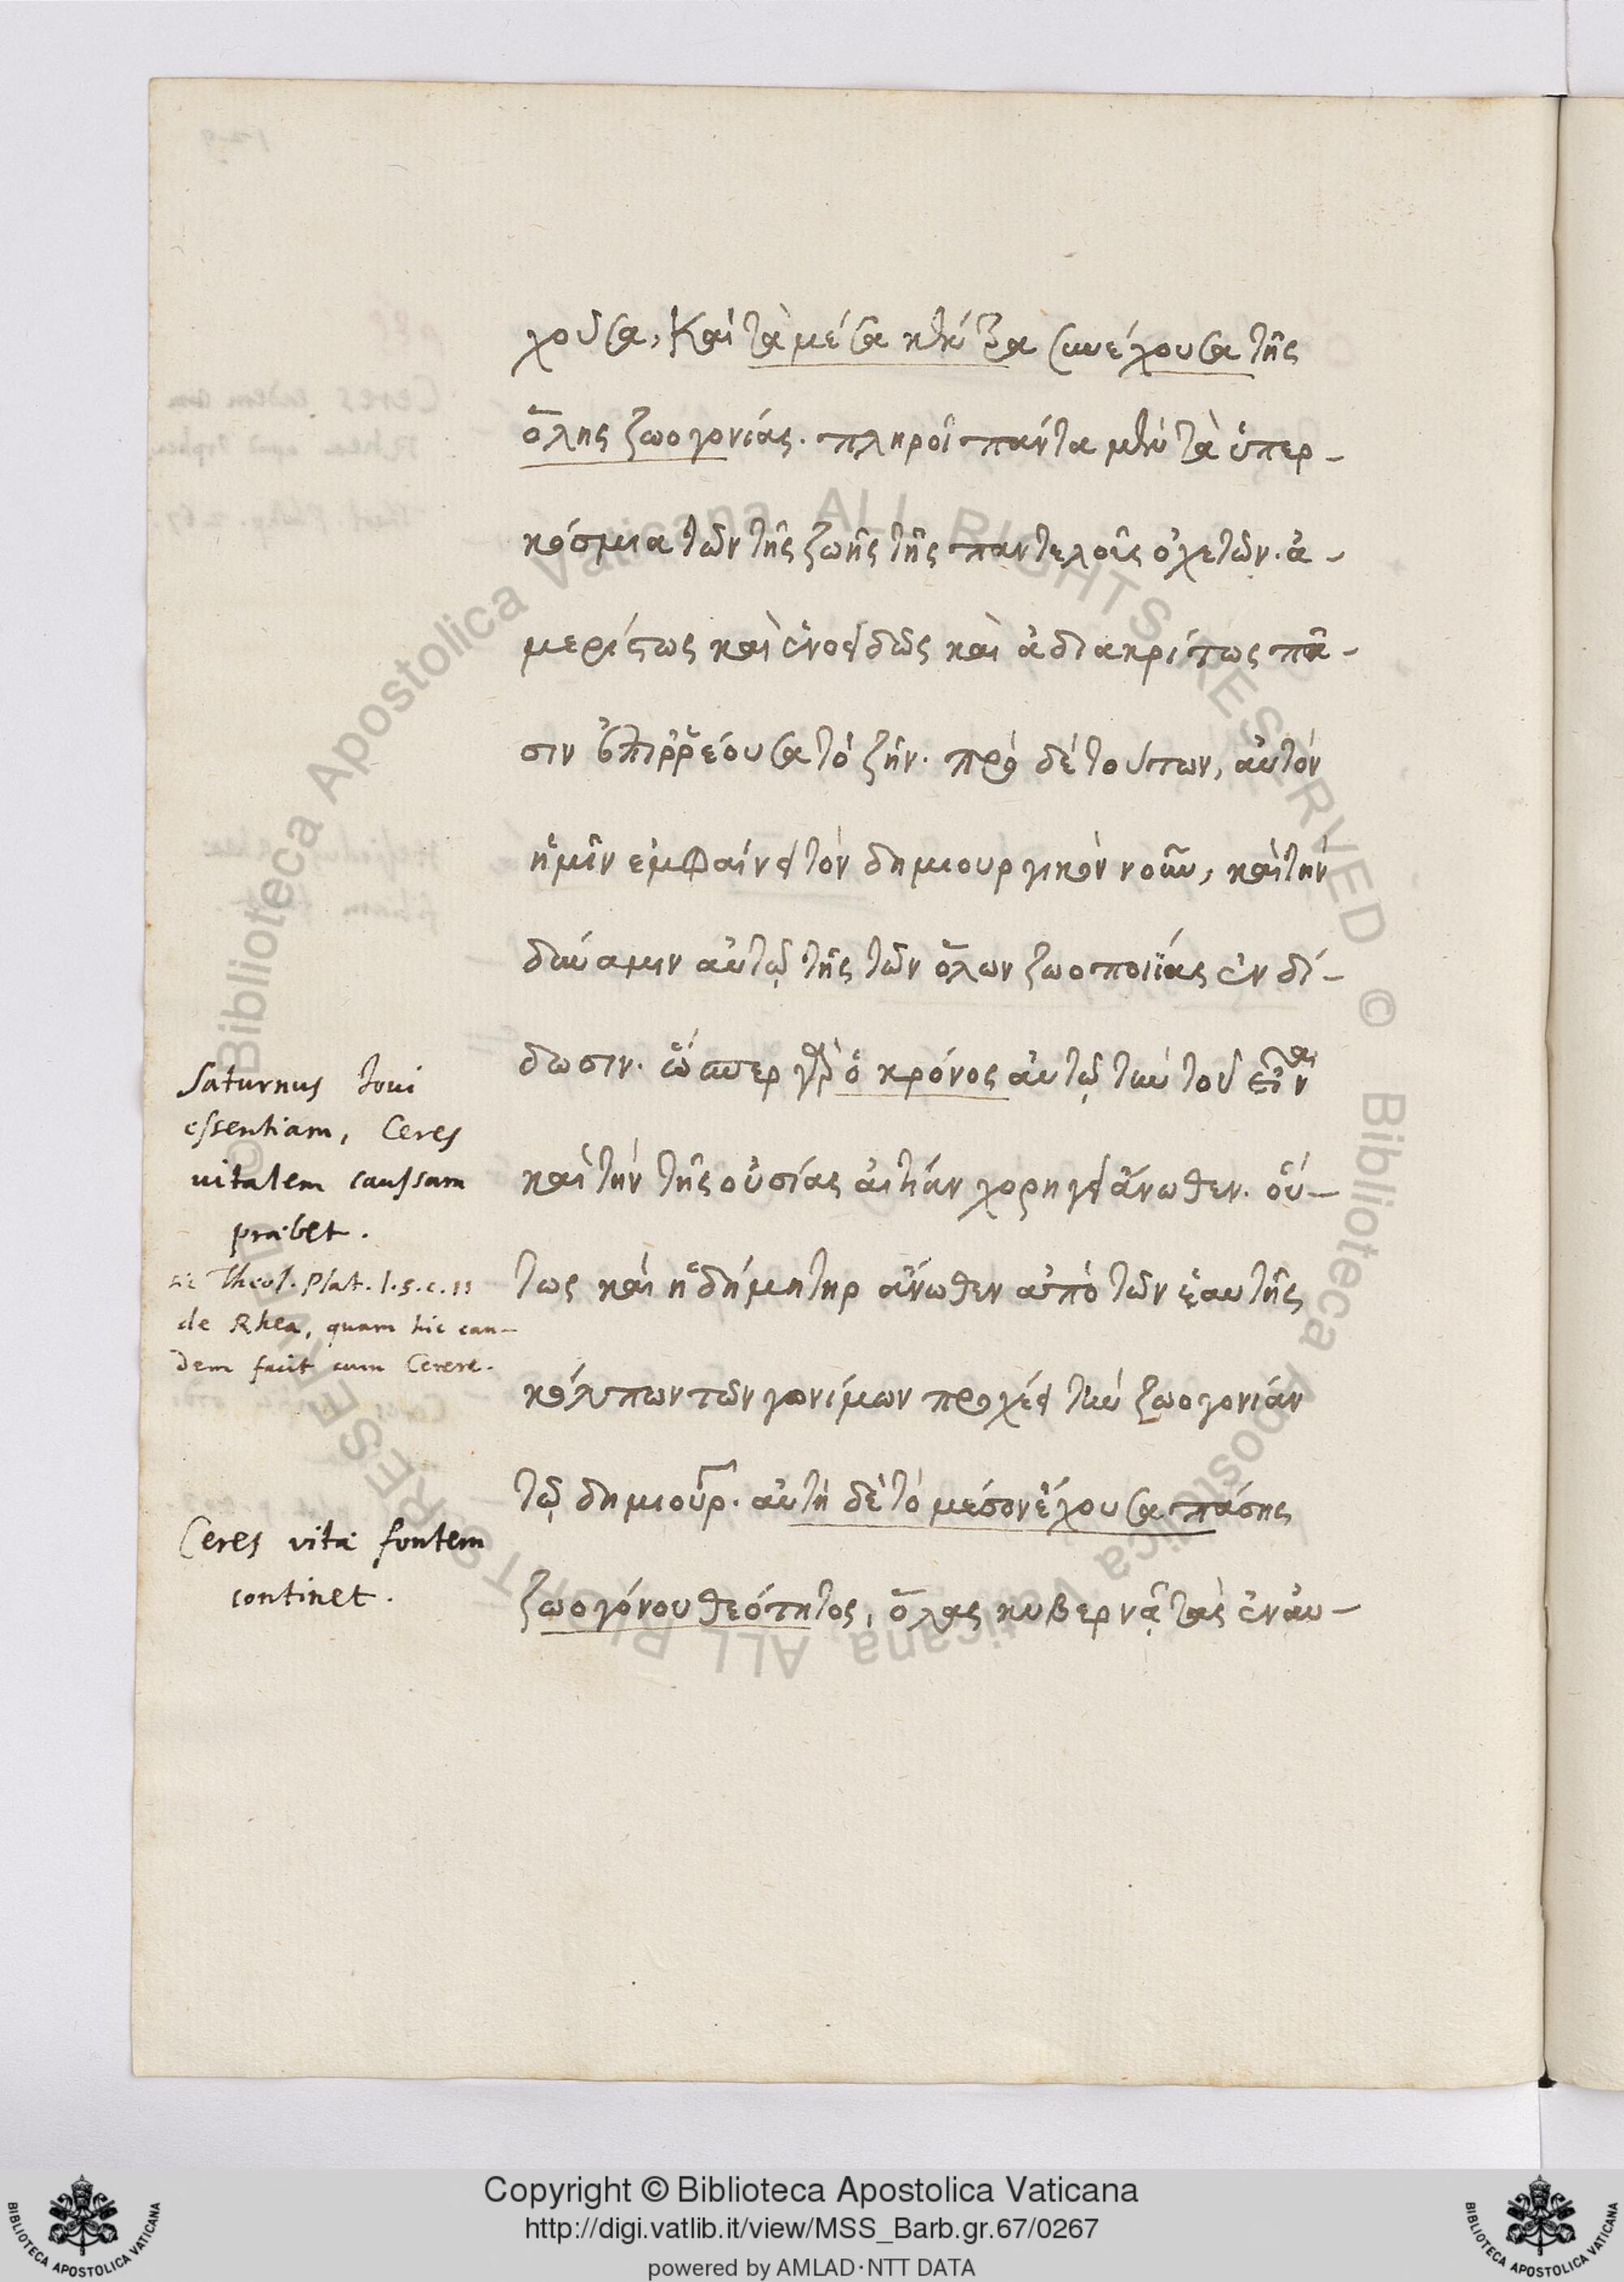 χοῦσα, καὶ τὰ μέσα κέντρα συνέχουσα τῆς
ὅλης ζωογονίας. πληροῖ πάντα μὲν τὰ ὑπερ-
κόσμια τῶν τῆς ζωῆς τῆς παντελοῦς ὀχετῶν. ἀ-
μερίστως καὶ ἑνοειδῶς καὶ ἀδιακρίτως πᾶ-
σιν ἐπιῤῥέουσα τὸ ζῆν. πρὸ δὲ τούτων, αὐτὸν
ἡμῖν ἐμφαίνει τὸν δημιουργικὸν νοῦν, καὶ τὴν
δύναμιν αὐτῷ τῆς τῶν ὅλων ζωοποιΐας ἐνδί-
δωσιν. ὥσπερ γὰρ ὁ κρόνος αὐτῷ τὴν τοῦ εἶναι
καὶ τὴν τῆς οὐσίας αἰτίαν χορηγεῖ ἄνωθεν. οὕ-
τως καὶ ἡ δημήτηρ ἄνωθεν ἀπὸ τῶν ἑαυτῆς
κόλπων τῶν γονίμων προχέει τὴν ζωογονίαν
τῷ δημιουρ. αὐτὴ δὲ τὸ μέσον ἔχουσα πάσης
ζωογόνου θεότητος, ὅλας κυβερνᾷ τὰς ἐν αὐ-
Saturnus Ioui
essentiam, Ceres
vitalem caussam
præbet.
sic Theol. Plat. l. 5. c. 11
de Rhea, quam hic ean-
dem facit cum Cerere.
Ceres vitæ fontem
continet.
© Biblioteca Apostolica Vaticana ALL RIGHTS RESERVED
© Biblioteca Apostolica Vaticana ALL RIGHTS RESERVED
BIBLIOTECA APOSTOLICA VATICANA
Copyright © Biblioteca Apostolica Vaticana
http://digi.vatlib.it/view/MSS_Barb.gr.67/0267
powered by AMLAD·NTT DATA
BIBLIOTECA APOSTOLICA VATICANA